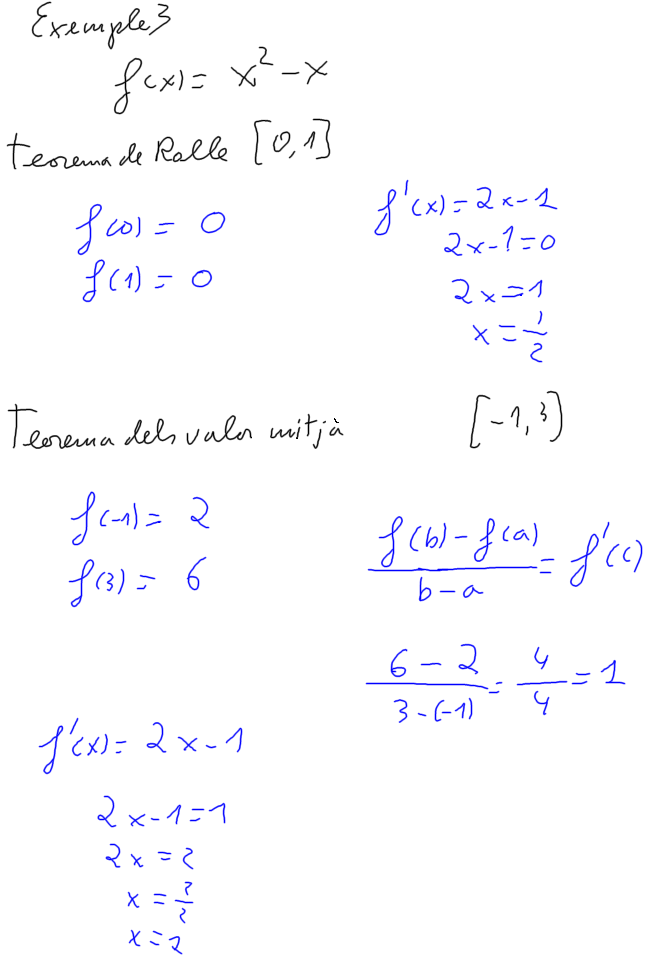 Exemple 3
f(x) = x² - x
Teorema de Rolle [0, 1]
f(0) = 0
f(1) = 0
f'(x) = 2x - 1
2x - 1 = 0
2x = 1
x = 1/2
Teorema dels valor mitjà [-1, 3]
f(-1) = 2
f(3) = 6
(f(b) - f(a))/(b - a) = f'(c)
(6 - 2)/(3 - (-1)) = 4/4 = 1
f'(x) = 2x - 1
2x - 1 = 1
2x = 2
x = 2/2
x = 1